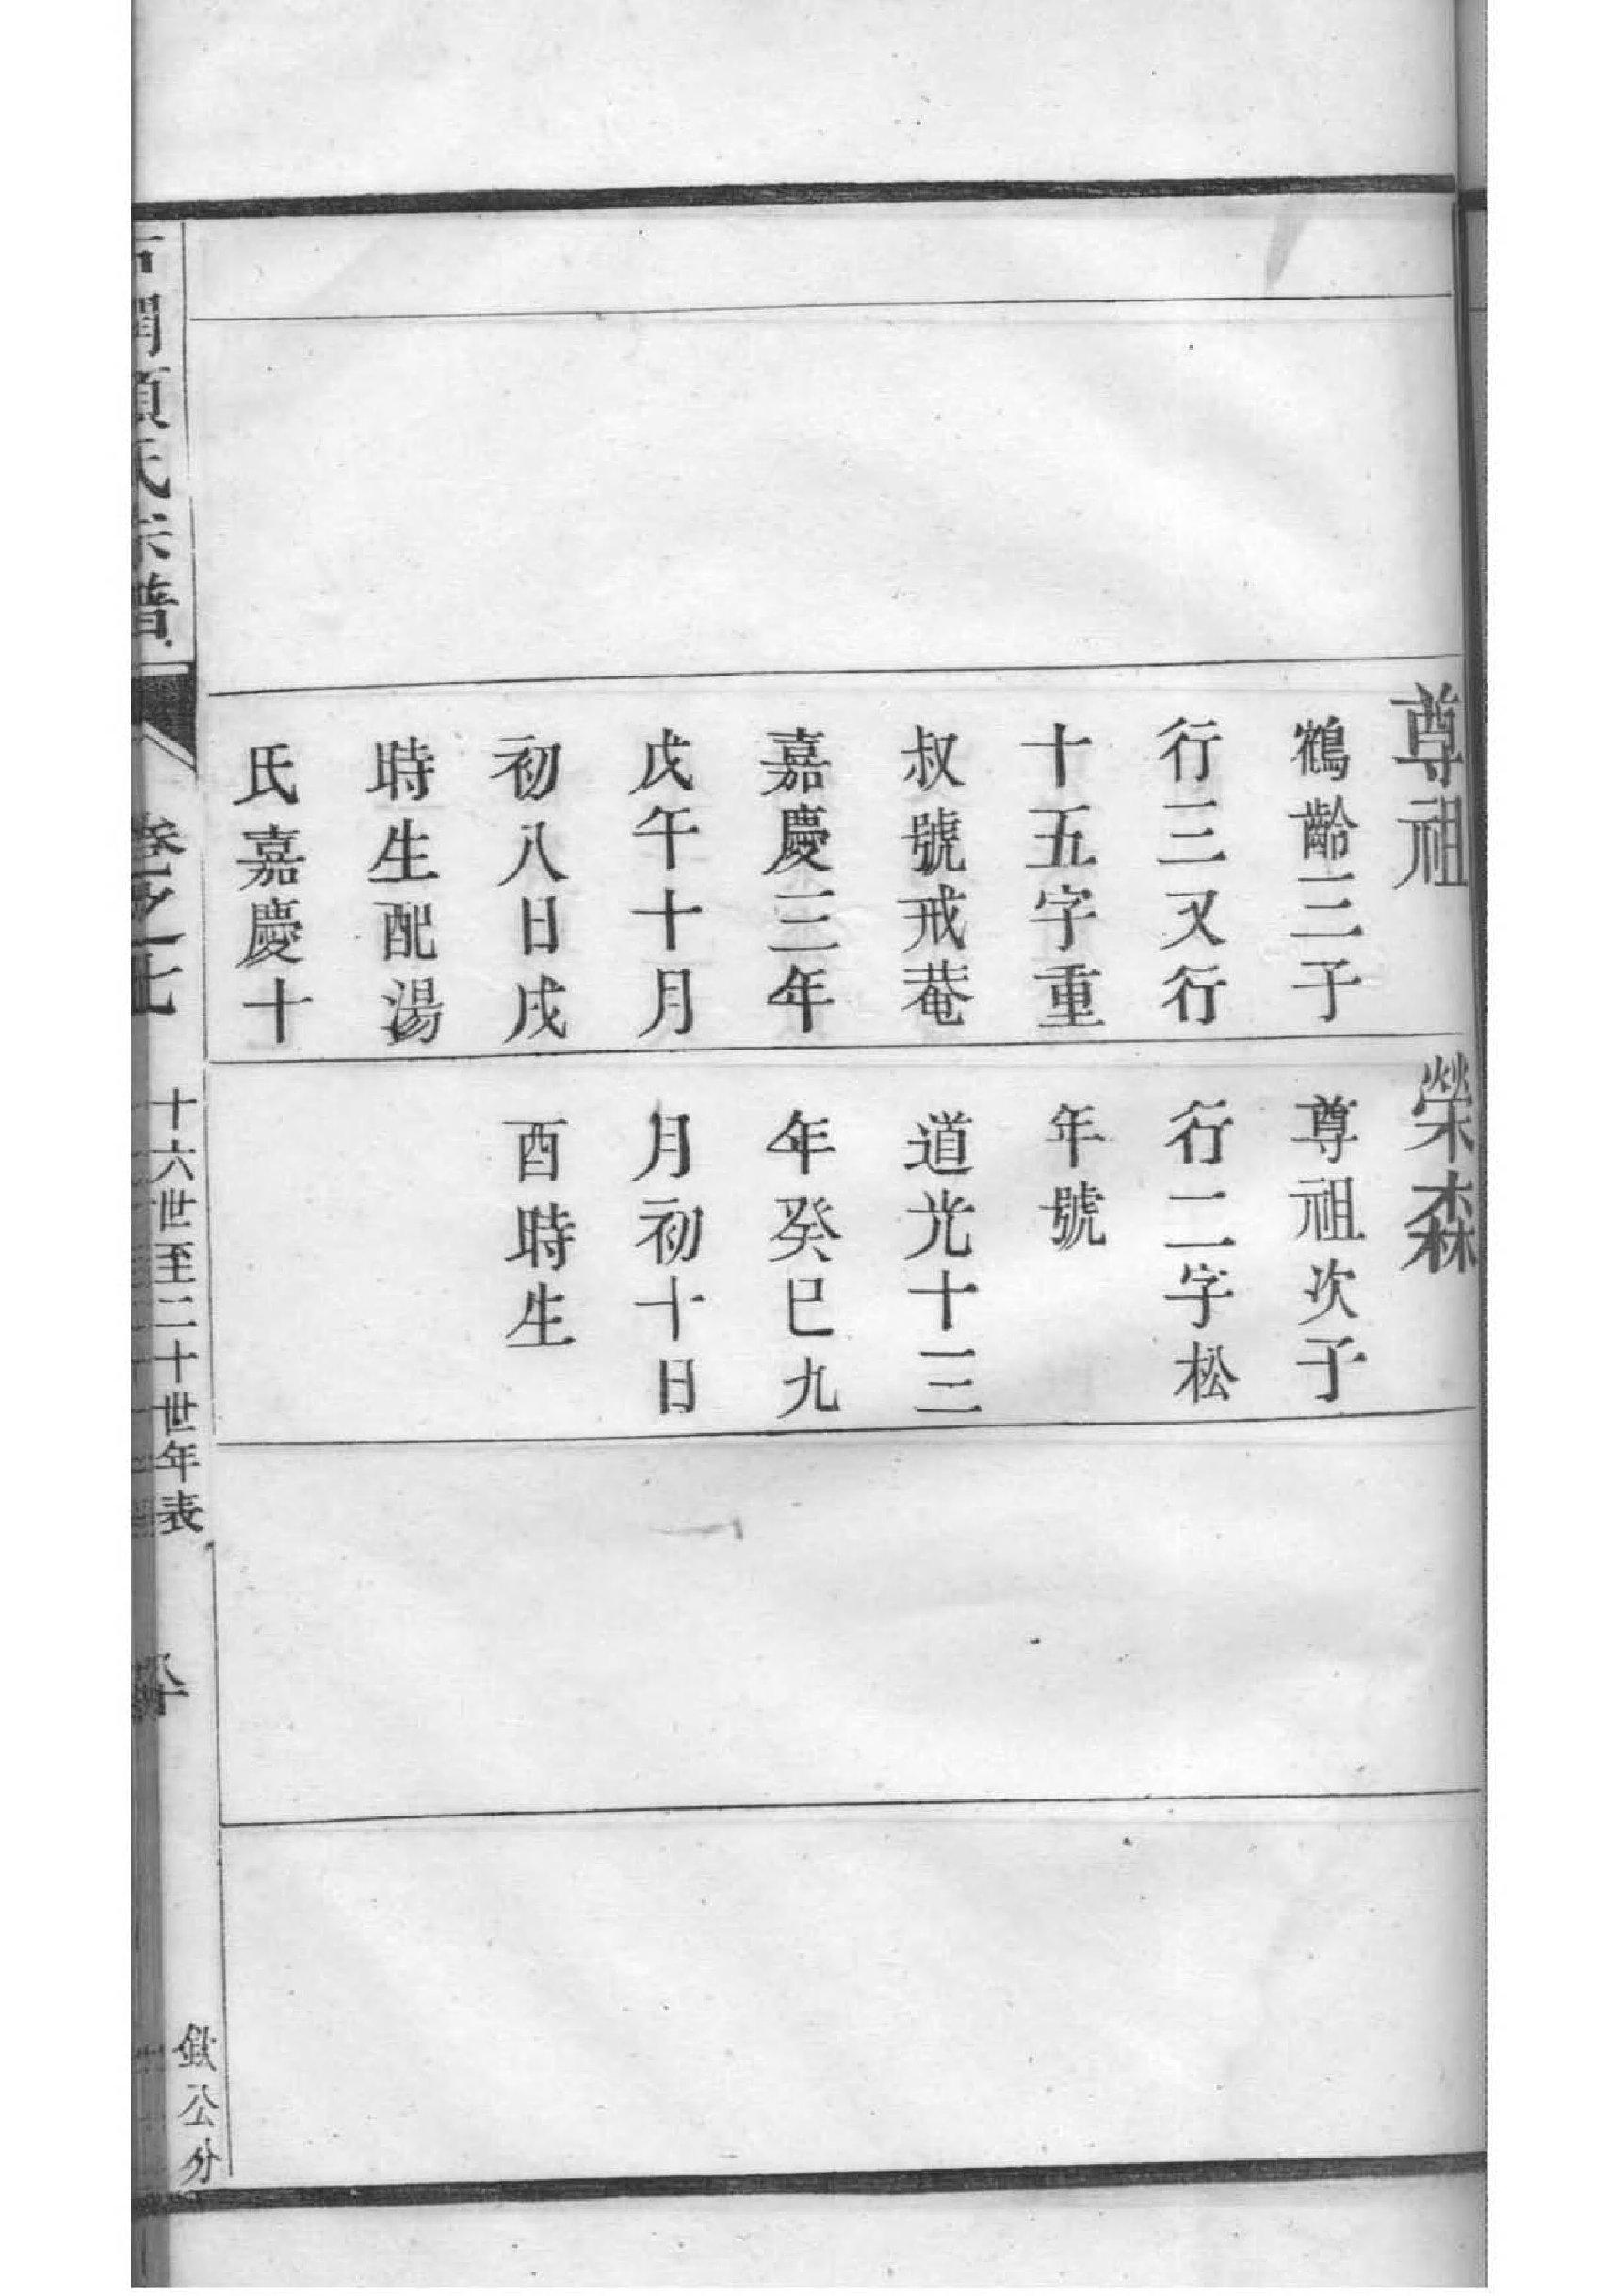 尊祖
鶴齡三子
行三又行
十五字重
叔號戒菴
嘉慶三年
戊午十月
初八日戌
時生配湯
氏嘉慶十
榮森
尊祖次子
行二字松
年號
道光十三
年癸巳九
月初十日
酉時生
氏宗譜
卷之七
十六世至二十世年表
欽公分